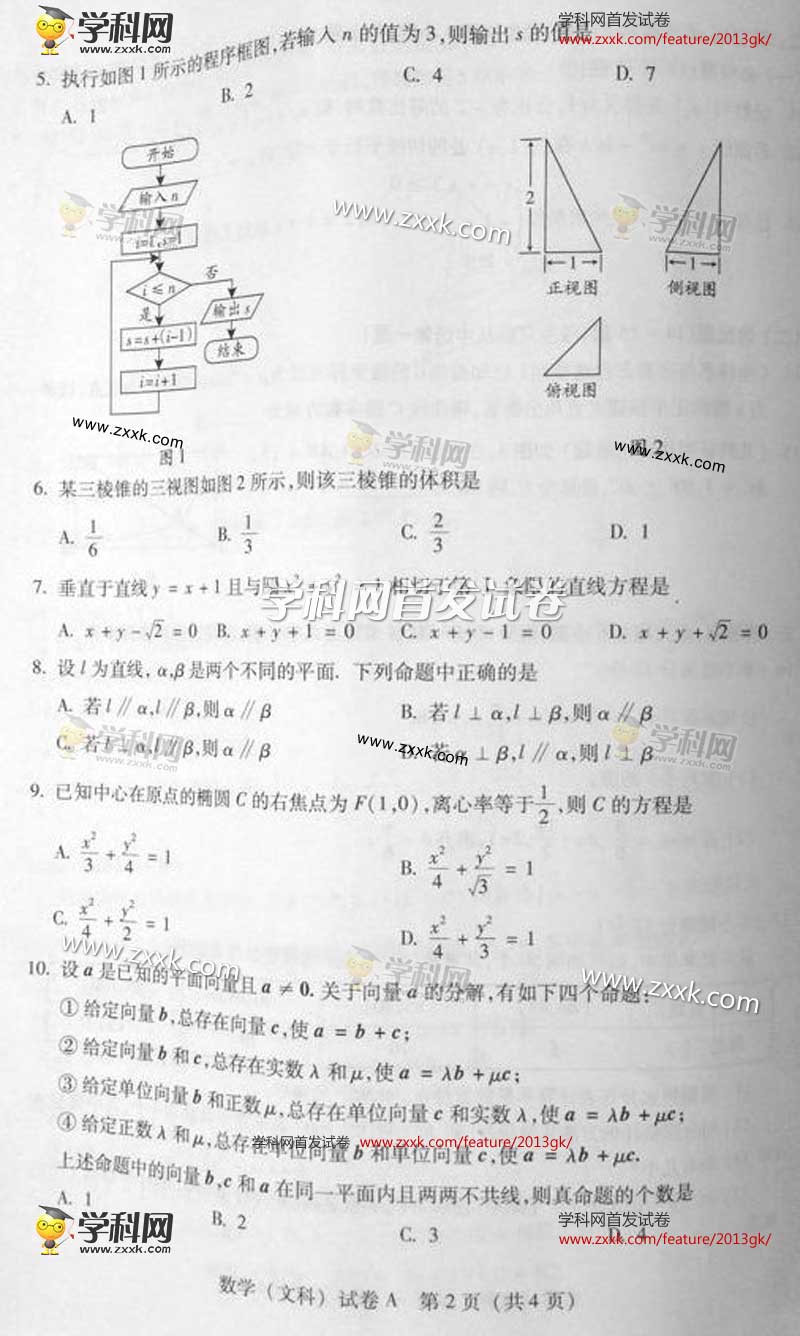 学科网
www.zxxk.com
学科网首发试卷
www.zxxk.com/feature/2013gk/
5. 执行如图1所示的程序框图,若输入 n 的值为3,则输出 s 的值是
A. 1 B. 2 C. 4 D. 7
开始
输入 n
i=1,s=1
i≤n
否
是
输出 s
s=s+(i-1)
结束
i=i+1
图1
2
1
1
正视图
侧视图
俯视图
图2
学科网
www.zxxk.com
www.zxxk.com
学科网
www.zxxk.com
www.zxxk.com
学科网
www.zxxk.com
www.zxxk.com
6. 某三棱锥的三视图如图2所示,则该三棱锥的体积是
A. 1/6 B. 1/3 C. 2/3 D. 1
7. 垂直于直线 y = x + 1 且与圆 相切于第 的直线方程是
学科网首发试卷
A. x + y - √2 = 0 B. x + y + 1 = 0 C. x + y - 1 = 0 D. x + y + √2 = 0
8. 设 l 为直线, α,β是两个不同的平面. 下列命题中正确的是
A. 若 l ∥ α,l ∥ β,则 α ∥ β B. 若 l ⊥ α,l ⊥ β,则 α ∥ β
C. 若 l ⊥ α,l ∥ β,则 α ∥ β D. 若 α ⊥ β,l ∥ α,则 l ⊥ β
学科网
www.zxxk.com
www.zxxk.com
学科网
www.zxxk.com
9. 已知中心在原点的椭圆 C 的右焦点为 F(1,0),离心率等于 1/2,则 C 的方程是
A. x²/3 + y²/4 = 1 B. x²/4 + y²/√3 = 1
C. x²/4 + y²/2 = 1 D. x²/4 + y²/3 = 1
www.zxxk.com
学科网
www.zxxk.com
www.zxxk.com
10. 设 a 是已知的平面向量且 a ≠ 0. 关于向量 a 的分解,有如下四个命题:
① 给定向量 b,总存在向量 c,使 a = b + c;
② 给定向量 b 和 c,总存在实数 λ 和 μ,使 a = λb + μc;
③ 给定单位向量 b 和正数 μ,总存在单位向量 c 和实数 λ,使 a = λb + μc;
④ 给定正数 λ 和 μ,总存在单位向量 b 和单位向量 c,使 a = λb + μc.
学科网首发试卷 www.zxxk.com/feature/2013gk/
上述命题中的向量 b,c 和 a 在同一平面内且两两不共线,则真命题的个数是
A. 1 B. 2 C. 3 D. 4
学科网
www.zxxk.com
学科网首发试卷
www.zxxk.com/feature/2013gk/
数学(文科)试卷A 第2页(共4页)